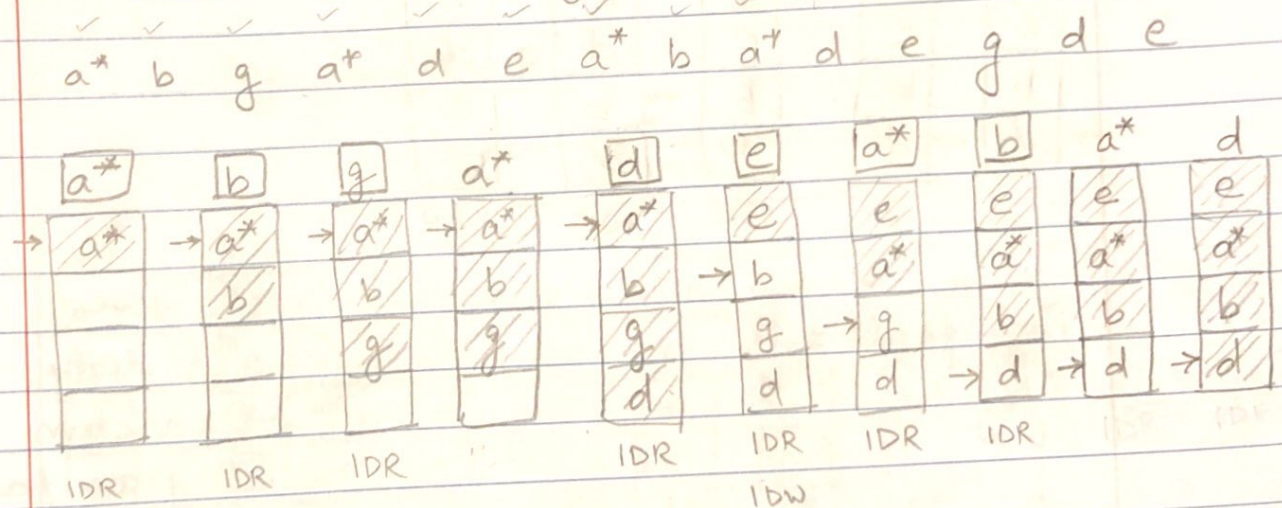 a* b g a* d e a* b a* d e g d e
a* b g a* d e a* b a* d
a* a* a* a* a* e e e e e
b b b b b a* a* a* a*
g g g g g b b b
d d d d d d
1DR 1DR 1DR 1DR 1DR 1DR 1DR
1DW